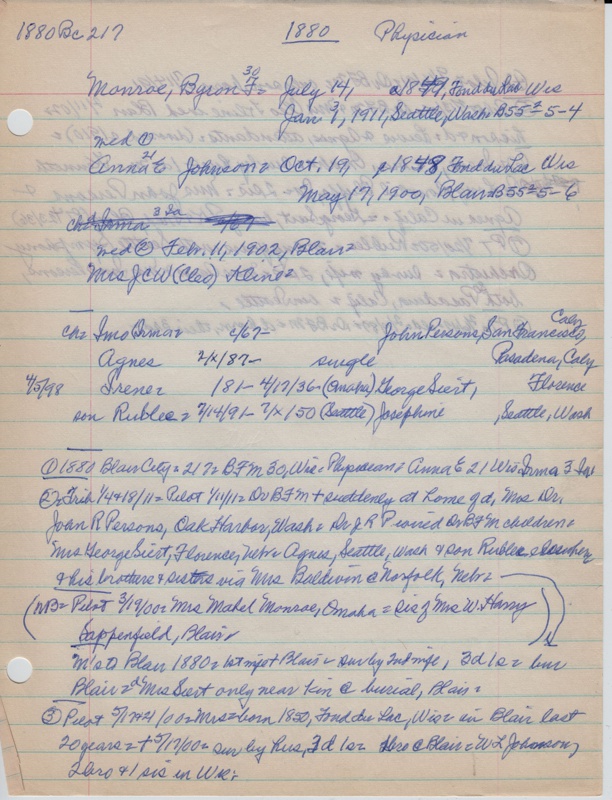 1880 Bc 217 1880 Physician
Monroe, Byron F= 30 July 14, c1849, Fond du Lac Wis
Jan 7, 1911, Seattle, Wash= B55=5-4
med ①
Anna E 21 Johnson= Oct. 19, c1848, Fond du Lac Wis
May 17, 1900, Blair= B55=5-6
ch= Irma 3 Ia
med ② Feb. 11, 1902, Blair=
Mrs J C W (Cleo) Kline=
ch= Imo Irma= c/67- John Persons, San Francisco, Caly
Agnes 2/x/87- single Pasadena, Caly
4/5/98 Irene= 181- 4/17/36- (Omaha) George Siert, Florence
son Rublee= 7/14/91- 7/x/50 (Seattle) Josephine , Seattle, Wash
① 1880 Blair City= 217= B F M 30, Wis= Physician= Anna E 21 Wis= Irma 3 Ia
② Trib 1/4+18/11= Pilot 1/11/11= Dr B F M + suddenly at home of d, Mrs Dr.
John R Persons, Oak Harbor, Wash= Dr J R P Dr B F M children=
Mrs George Siert, Florence, Nebr= Agnes, Seattle, Wash & son Rublee
& his brothers & sisters via Mrs Baldwin @ Norfolk, Nebr=
(NB= Pilot 3/19/00= Mrs Mabel Monroe, Omaha= sis of Mrs W. Harry
Cappenfield, Blair)
M's to Blair 1880= 1st mj at Blair= sur by 2nd wife, 3d 1s= bur
Blair= d Mrs Siert only near kin @ burial, Blair=
③ Pilot 5/17+21/00= Mrs= born 1850, Fond du Lac, Wis= in Blair last
20 years= + 5/17/00= sur by hus, 3d 1s= bro @ Blair= W L Johnson,
2 bro & 1 sis in Wis=